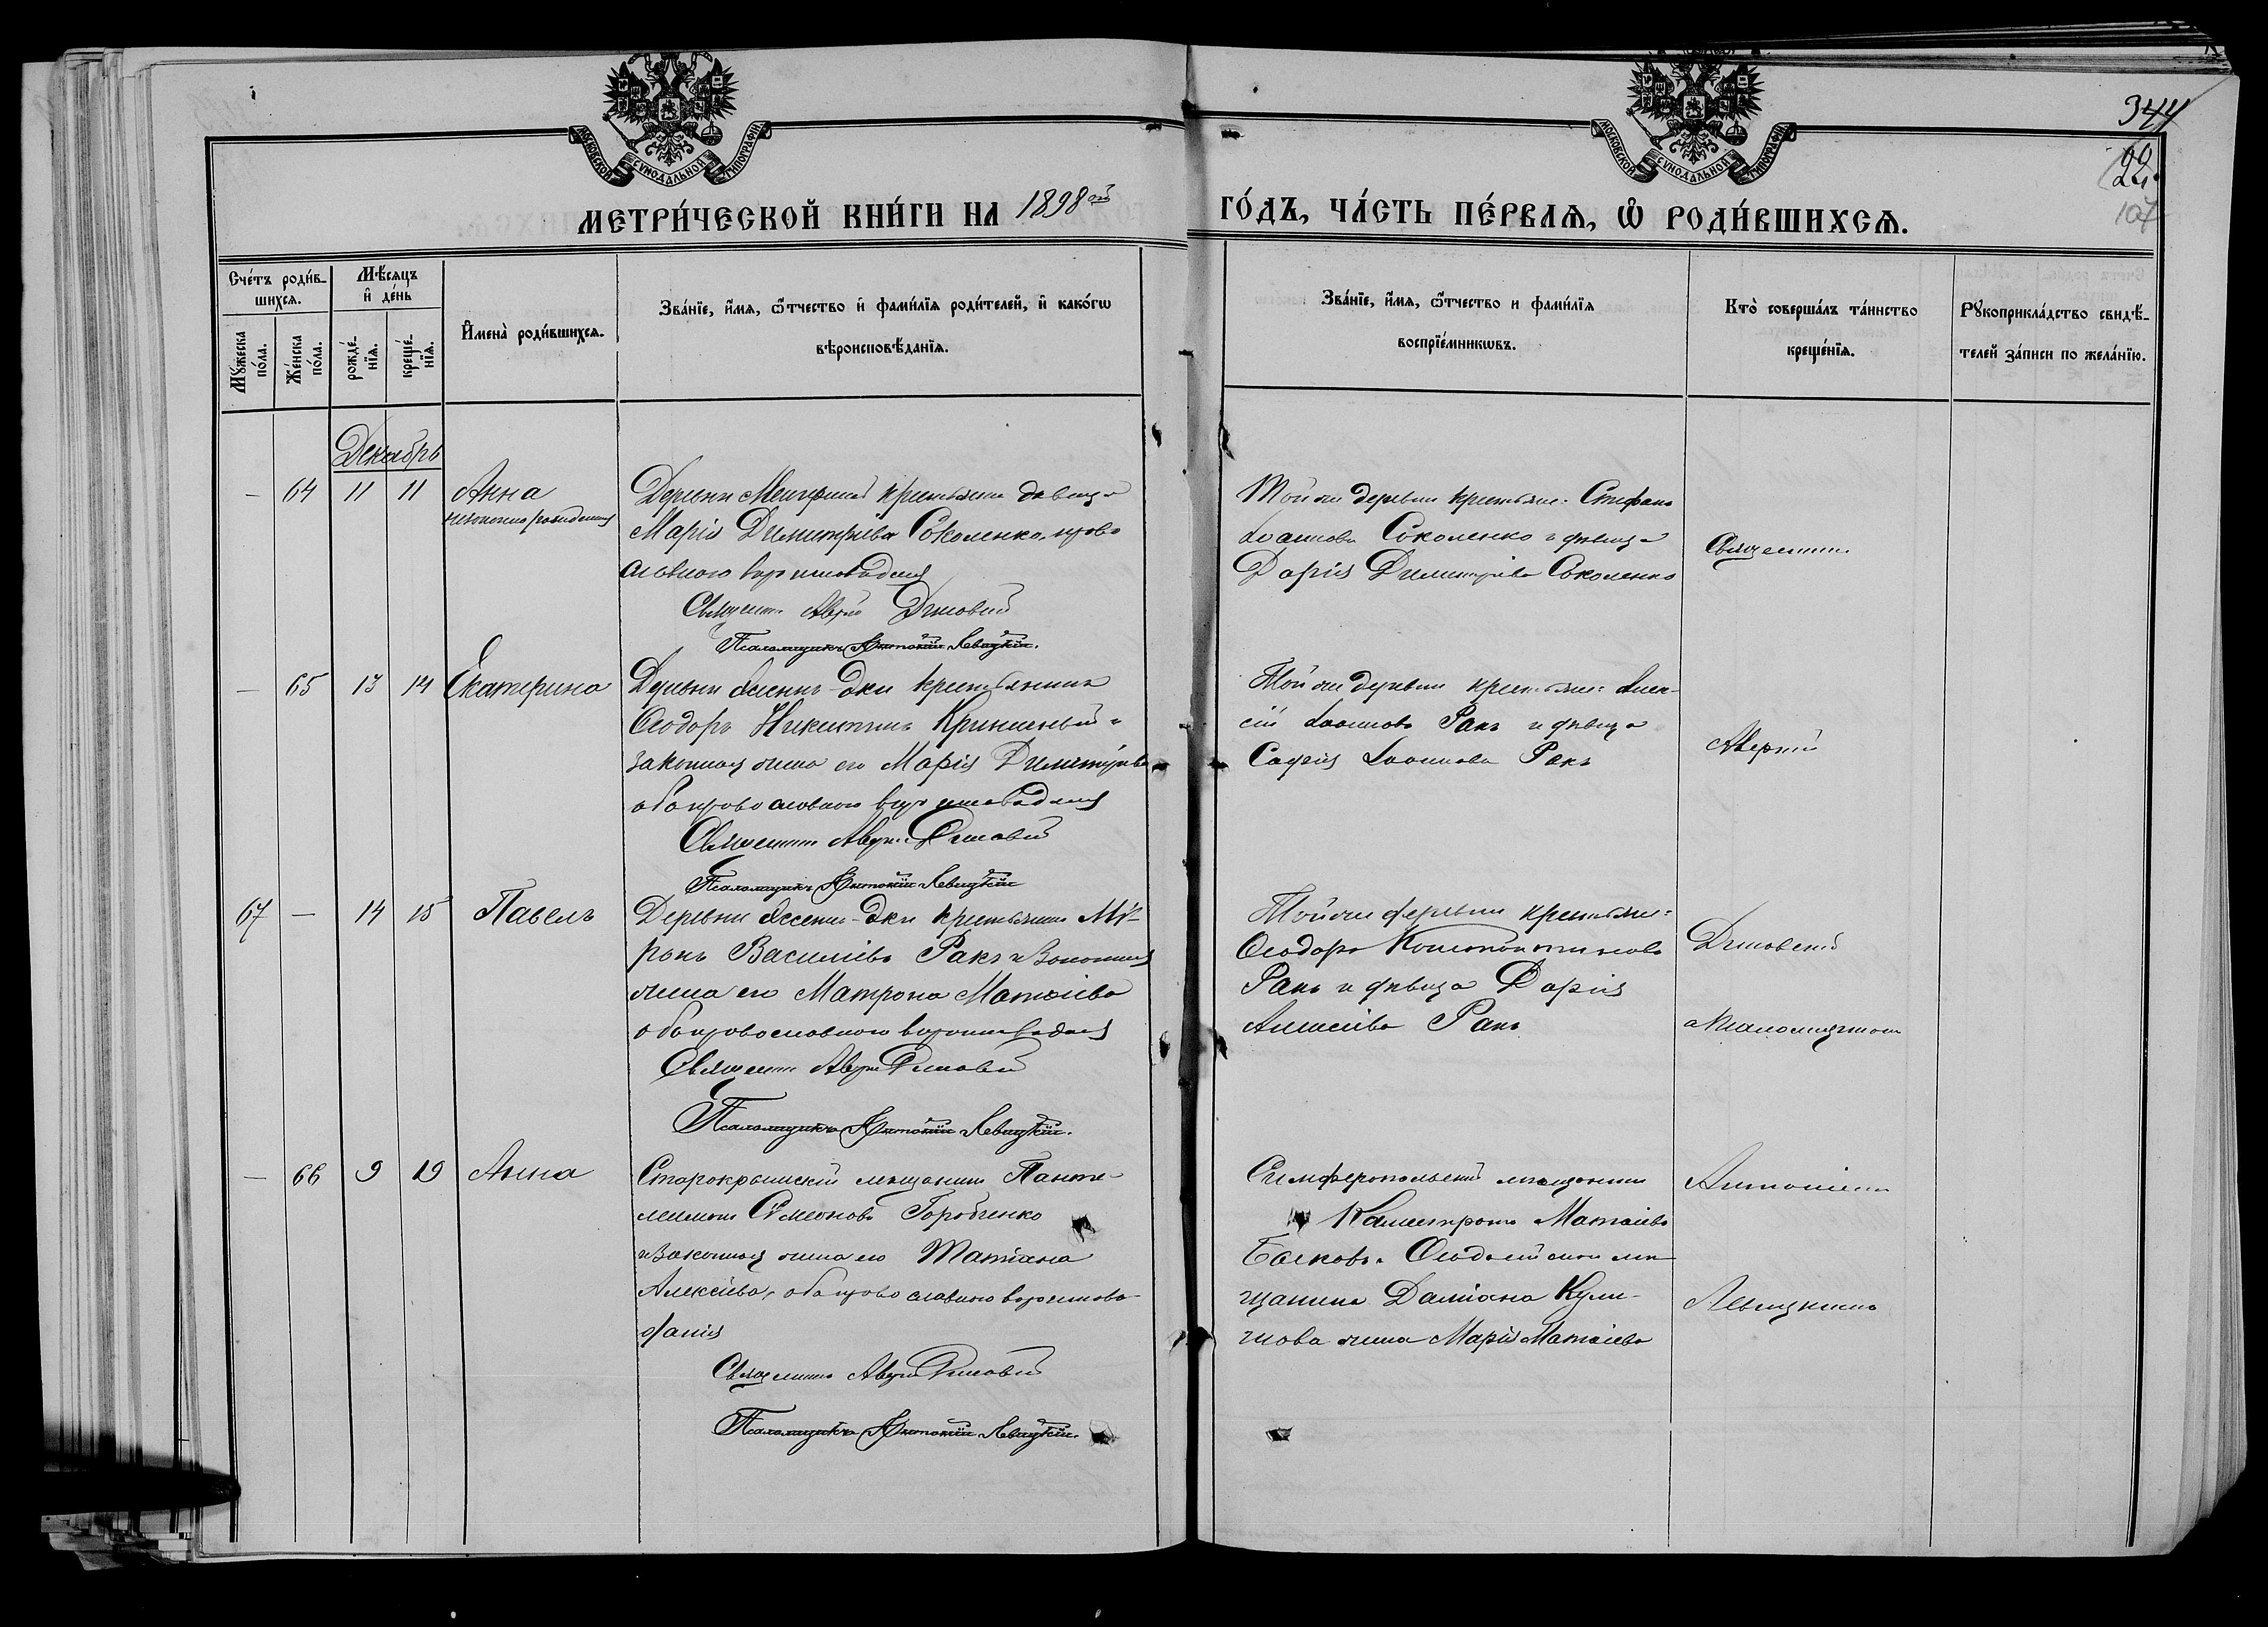 344
22
107
МОСКОВСКОЙ СУНОДАЛЬНОЙ ТИПОГРАФІИ
МОСКОВСКОЙ СУНОДАЛЬНОЙ ТИПОГРАФІИ
МЕТРИ́ЧЕСКОЙ КНИ́ГИ НА 1898 ой ГО́ДЪ, ЧА́СТЬ ПЕ́РВАѦ, Ѡ҆ РОДИ́ВШИХСѦ.
Сче́тъ роди́в-
шихсѧ.
Мѹ́жеска по́ла.
Же́нска по́ла.
Мѣ́сѧцъ
и҆ де́нь
рожде́-
нїѧ.
креще́-
нїѧ.
И҆мена̀ роди́вшихсѧ.
Зва́нїе, и҆́мѧ, ѻ҆́тчество и҆ фами́лїѧ роди́телей, и҆ како́гѡ
вѣроисповѣ́данїѧ.
Зва́нїе, и҆́мѧ, ѻ҆́тчество и фами́лїѧ
воспрїе́мникѡвъ.
Кто̀ соверша́лъ та́инство
креще́нїѧ.
Рѹкоприкла́дство свидѣ́-
телей за́писи по жела́нїю.
Декабрь
— 64 11 11 Анна
незаконно рожденная
Деревни крестьянка девица
Марія Димитріева Соколенко, право
славного вероисповеданія
Священникъ
Псаломщикъ Антоній Левицкій.
Той же деревни крестьян: Стефанъ
Іоанновъ Соколенко и девица
Дарія Димитріева Соколенко
Священникъ
— 65 13 14 Екатерина
Деревни крестьянинъ
Ѳеодоръ Никитинъ и
законная жена его Марія Димитріева
оба православного вероисповеданія
Священникъ
Псаломщикъ Антоній Левицкій
Той же деревни крестьян: Алек-
сій Іоанновъ Ракъ и девица
Софія Іоаннова Ракъ
Аверкій
67 — 14 15 Павелъ
Деревни крестьянинъ Мѵ-
ронъ Василіевъ Ракъ и законная
жена его Матрона Матѳіева
оба православного вероисповеданія
Священникъ
Псаломщикъ Антоній Левицкій.
Той же деревни крестьян:
Ѳеодоръ Константиновъ
Ракъ и девица Дарія
Алексіева Ракъ
съ псаломщикомъ
— 66 9 19 Анна
Старокрымскій мещанинъ Панте-
леимонъ Сѵмеоновъ Горобченко
и законная жена его Татіана
Алексіева, оба православного вероиспове-
данія
Священникъ
Псаломщикъ Антоній Левицкій.
Симферопольскій мещанинъ
Калистратъ Матѳіевъ
Ѳеодосійскаго ме-
щанина Даміана
жена Марія Матѳіева
Антоніемъ
Левицкимъ